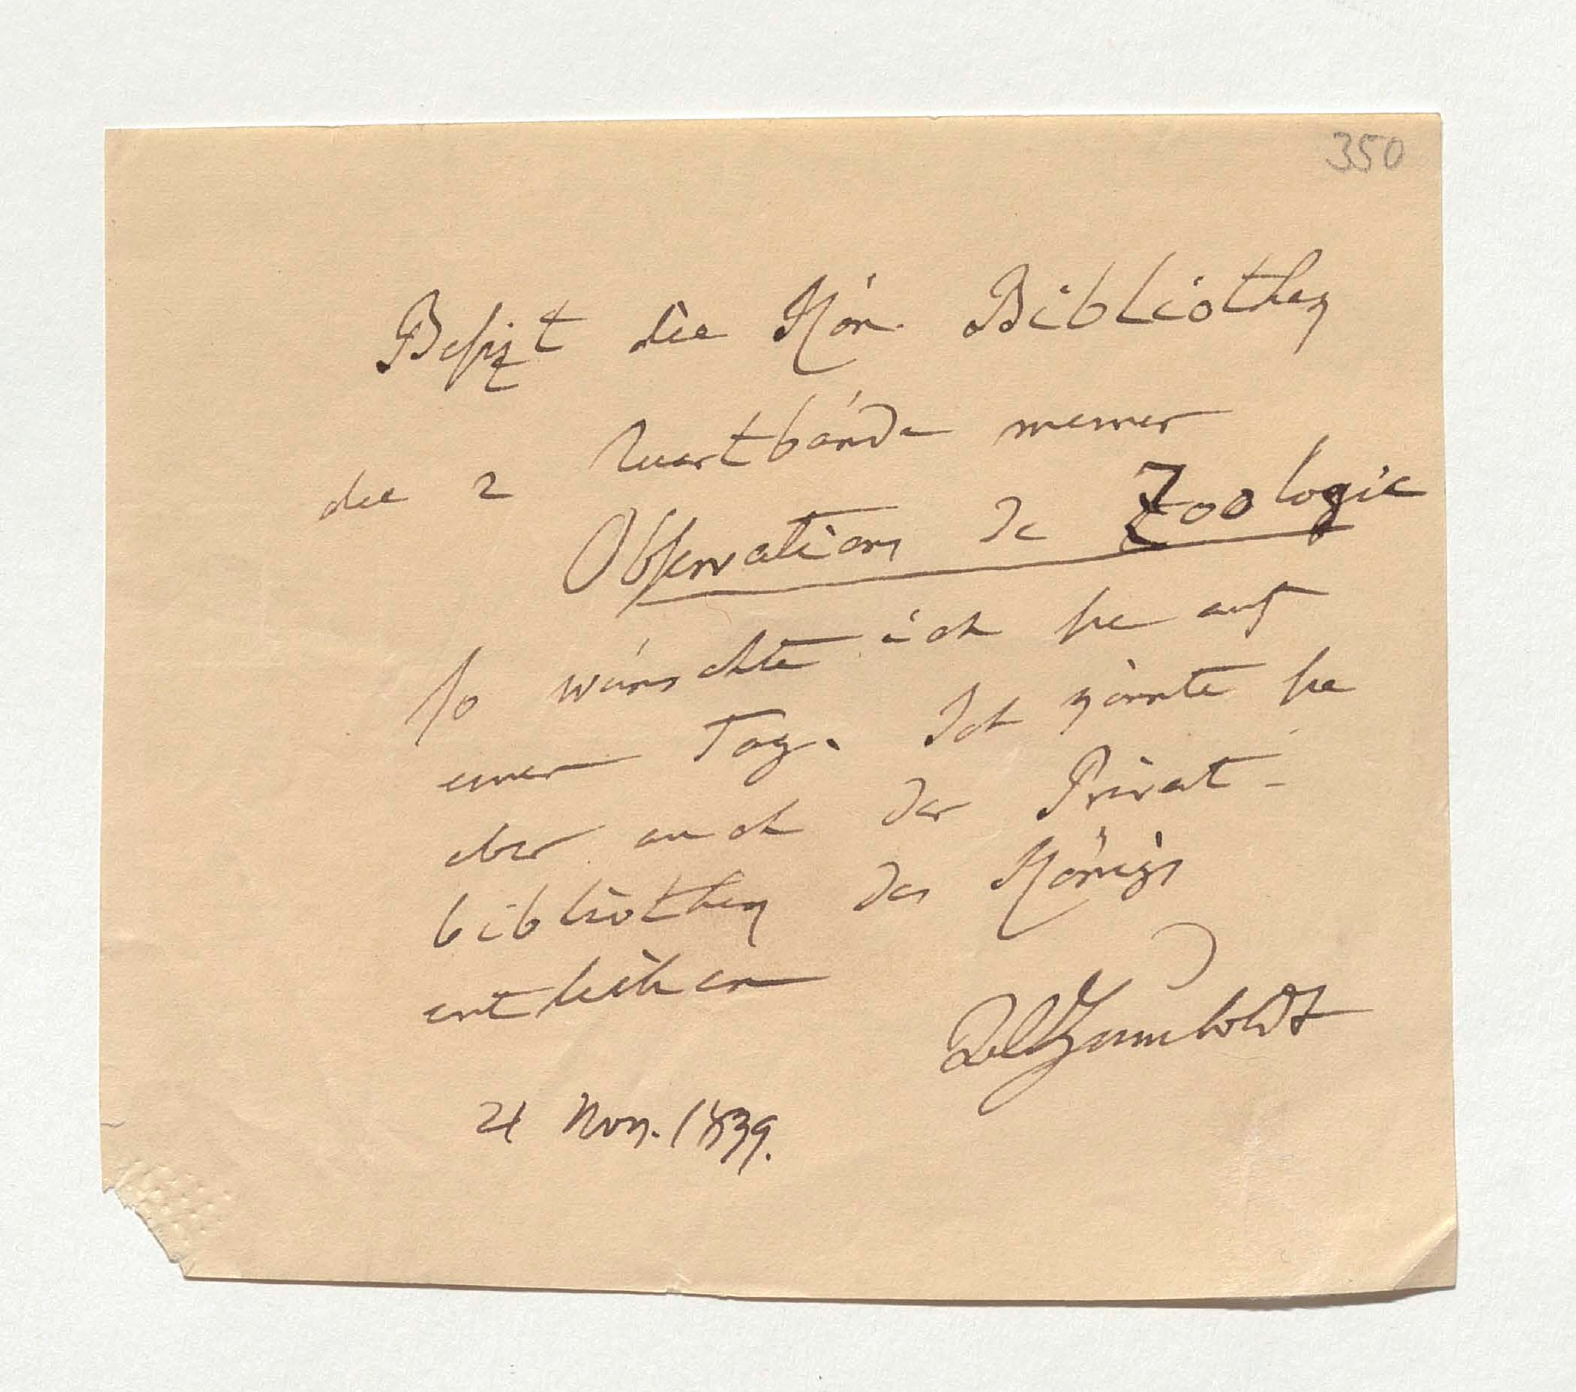 350
Besizt die Kön. Bibliothek
die 2 Quartbände meiner
Observations de Zoologie
so wünschte ich sie auf
einen Tag. Ich könnte sie
aber auch der Privat-
bibliothek des Königs
entleihen
AlHumboldt
21 Nov. 1839.